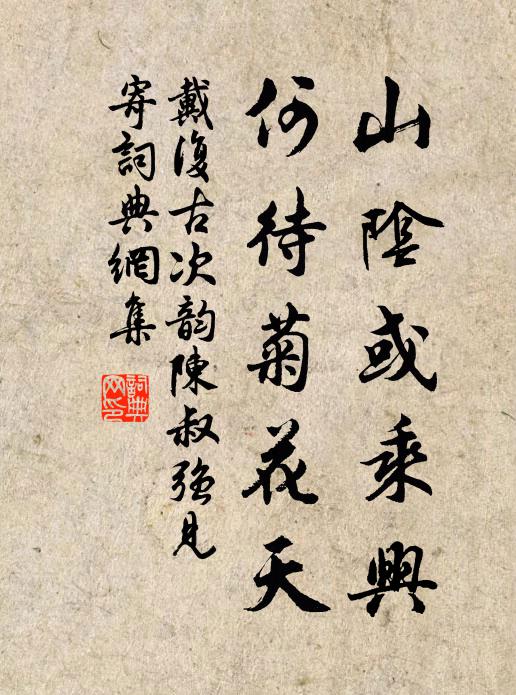 山陰或乘興
何待菊花天
戴復古次韵陳叔強見
寄詞典網集
詞典
网印